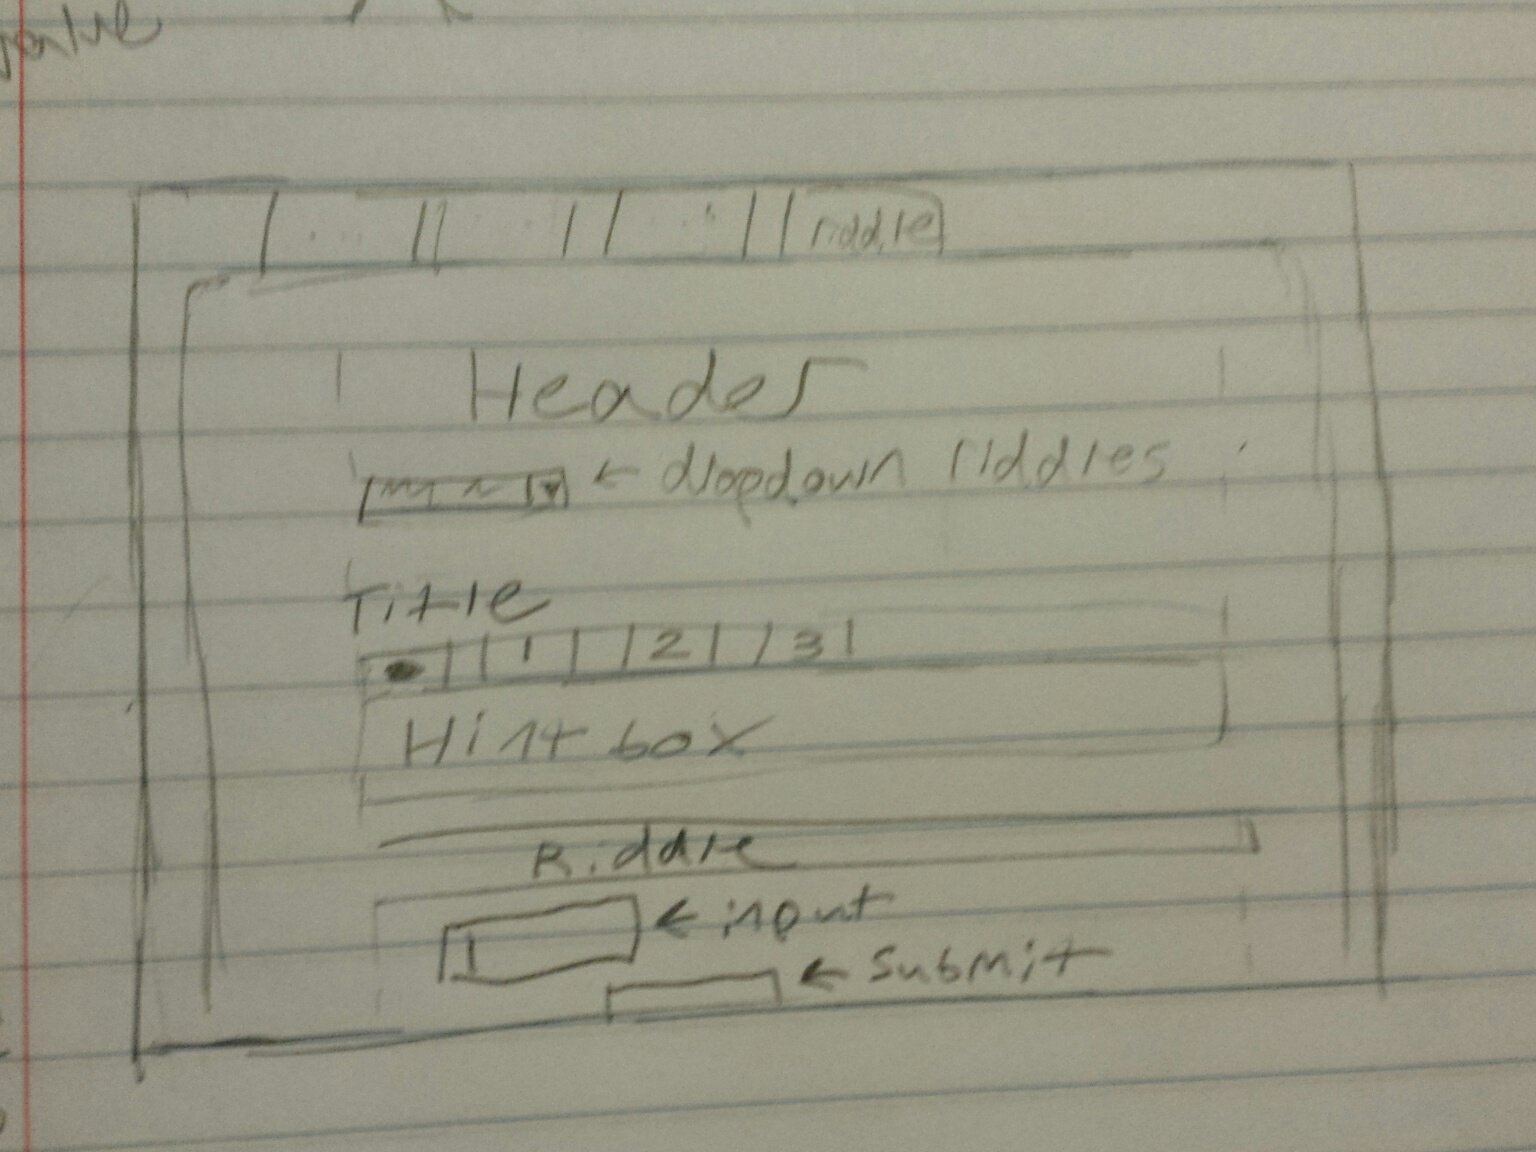 value
riddle
Header
← dropdown riddles
Title
1 2 3
Hint box
Riddle
← input
← submit